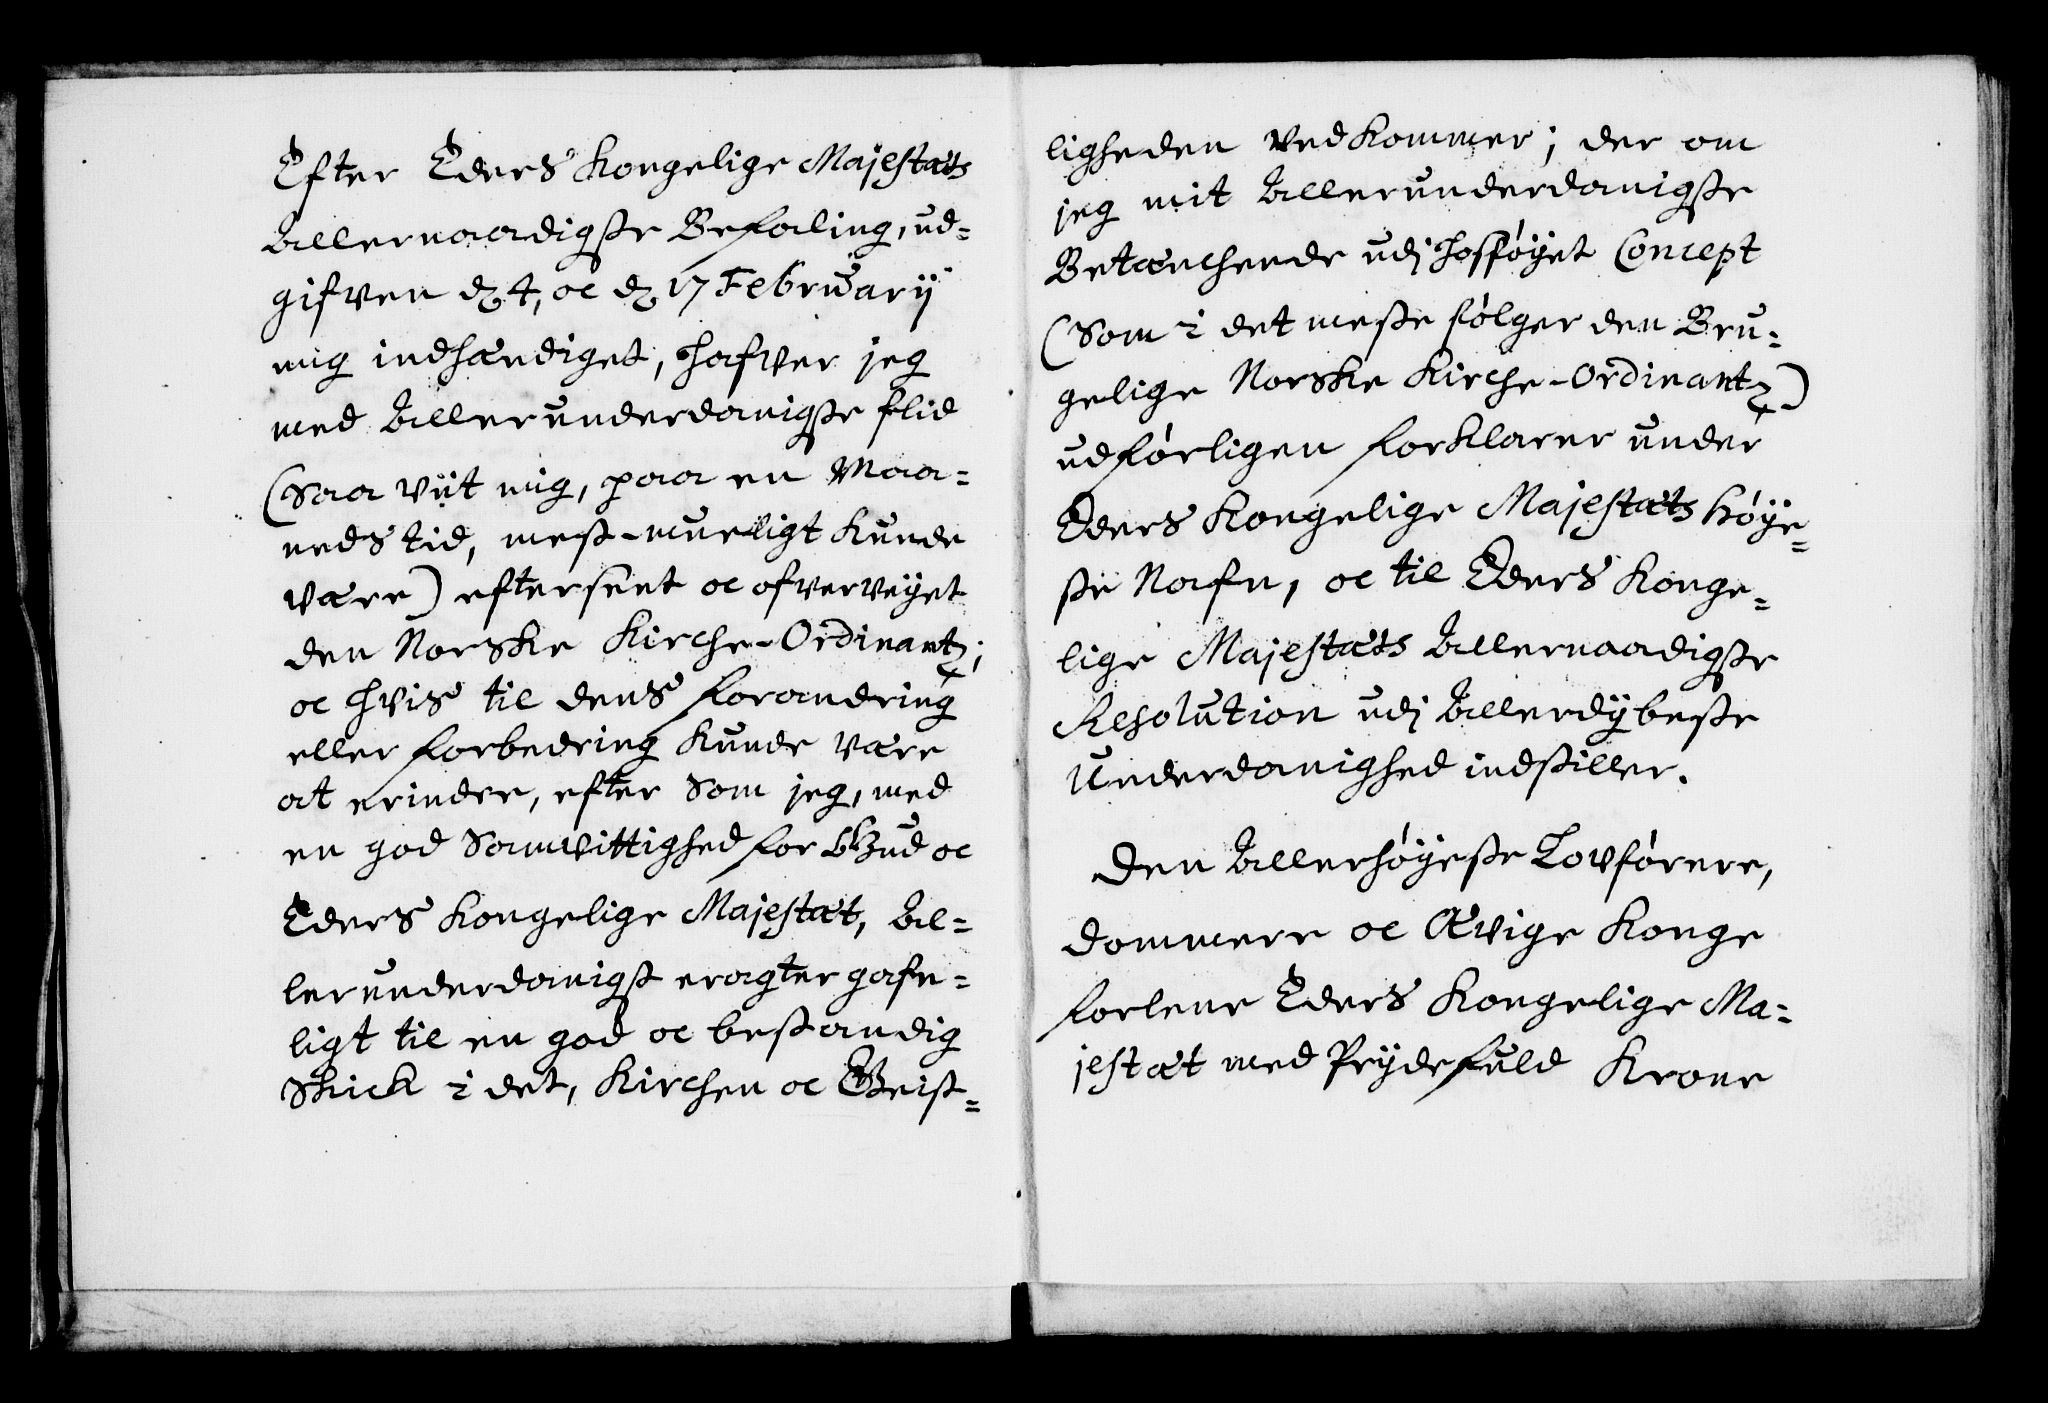 Efter Eders Kongelige Majestæts
Allernaadigste Befaling, ud-
gifven d. 4, oc d. 17 Februarii
mig indhændiget, hafver jeg
med Allerunderdanigste flid
(Saa vijt mig, paa en Maa-
neds tid, mest-mueligt kunde
være) efterseet oc ofverveyet
den Norske Kirche-Ordinantz;
oc hvis til dens forandring
eller forbedring kunde være
at erindre, efter som jeg, med
en god Samvittighed for Gud oc
Eders Kongelige Majestæt, Al-
lerunderdanigst eragter gafn-
ligt til en god oc bestandig
Skick i det, Kirchen oc Geist-
ligheden vedkommer; der om
jeg mit Allerunderdanigste
Betænchende udj hosføyet Concept
(Som i det meste følger den Bru-
gelige Norske Kirche-Ordinantz)
udførligen forklarer under
Eders Kongelige Majestæts Høye-
ste Nafn, oc til Eders Konge-
lige Majestæts Allernaadigste
Resolution udj Allerdybeste
Underdanighed indstiller.
Den Allerhøyeste Lovførere,
Dommere oc Ævige Konge
forlene Eders Kongelige Ma-
jestæt med Prydefuld Krone